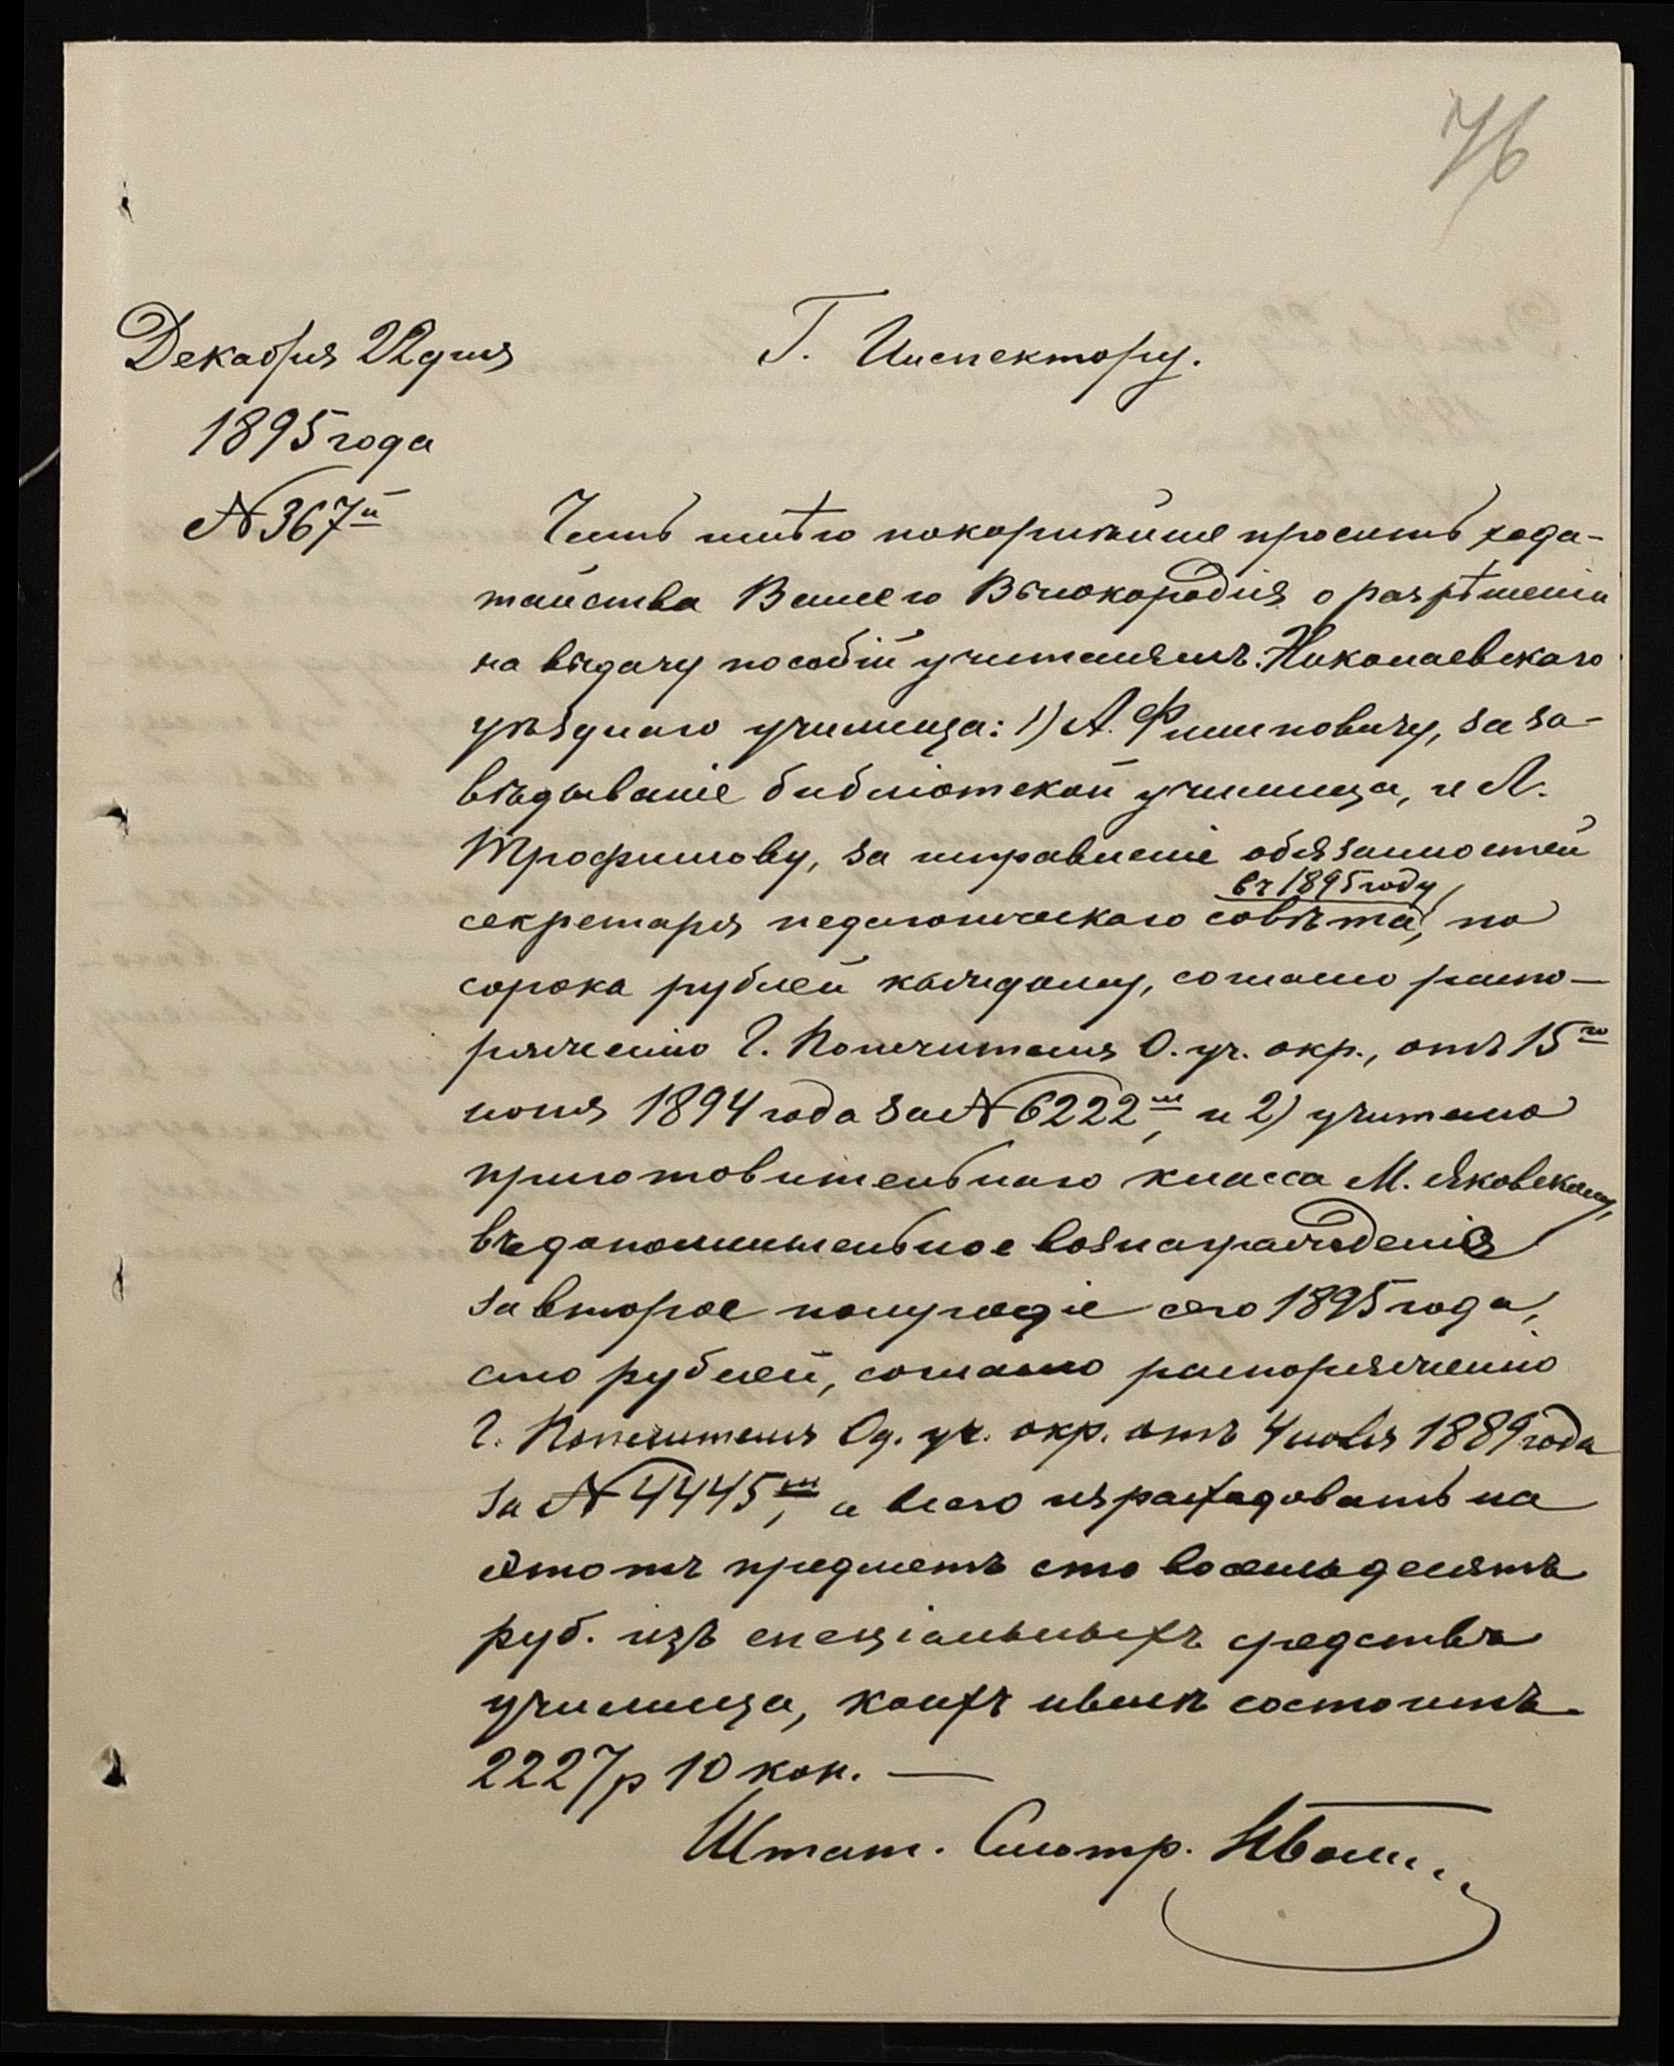 76
Декабря 22 дня
1895 года
№ 367й
Г. Инспектору.
Честь имѣю покорнѣйше просить хода-
тайства Вашего Высокородія о разрѣшеніи
на выдачу пособій учителямъ Николаевскаго
уѣзднаго училища: 1) А. Филиповичу, за за-
вѣдываніе библіотекой училища, и Л.
Трофимову, за исправленіе обязанностей
въ 1895 году,
секретаря педагогическаго совѣта, по
сорока рублей каждому, согласно распо-
ряженію Г. Попечителя О. уч. окр., отъ 15го
1894 года за № 6222м, и 2) учителю
приготовительнаго класса М. Яковскому,
въ дополнительное вознагражденія
за второе полугодіе сего 1895 года,
сто рублей, согласно распоряженію
Г. Попечителя Од. уч. окр. отъ 4 1889 года
за № 4445м, а всего израсходовать на
этотъ предметъ сто восемьдесятъ
руб. изъ спеціальныхъ средствъ
училища, коихъ нынѣ состоитъ
2227 р 10 коп. —
Штат. Смотр.